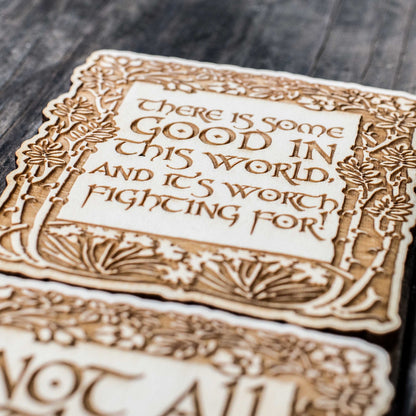 There is some
Good in
this world,
and it's worth
fighting for.
Not All